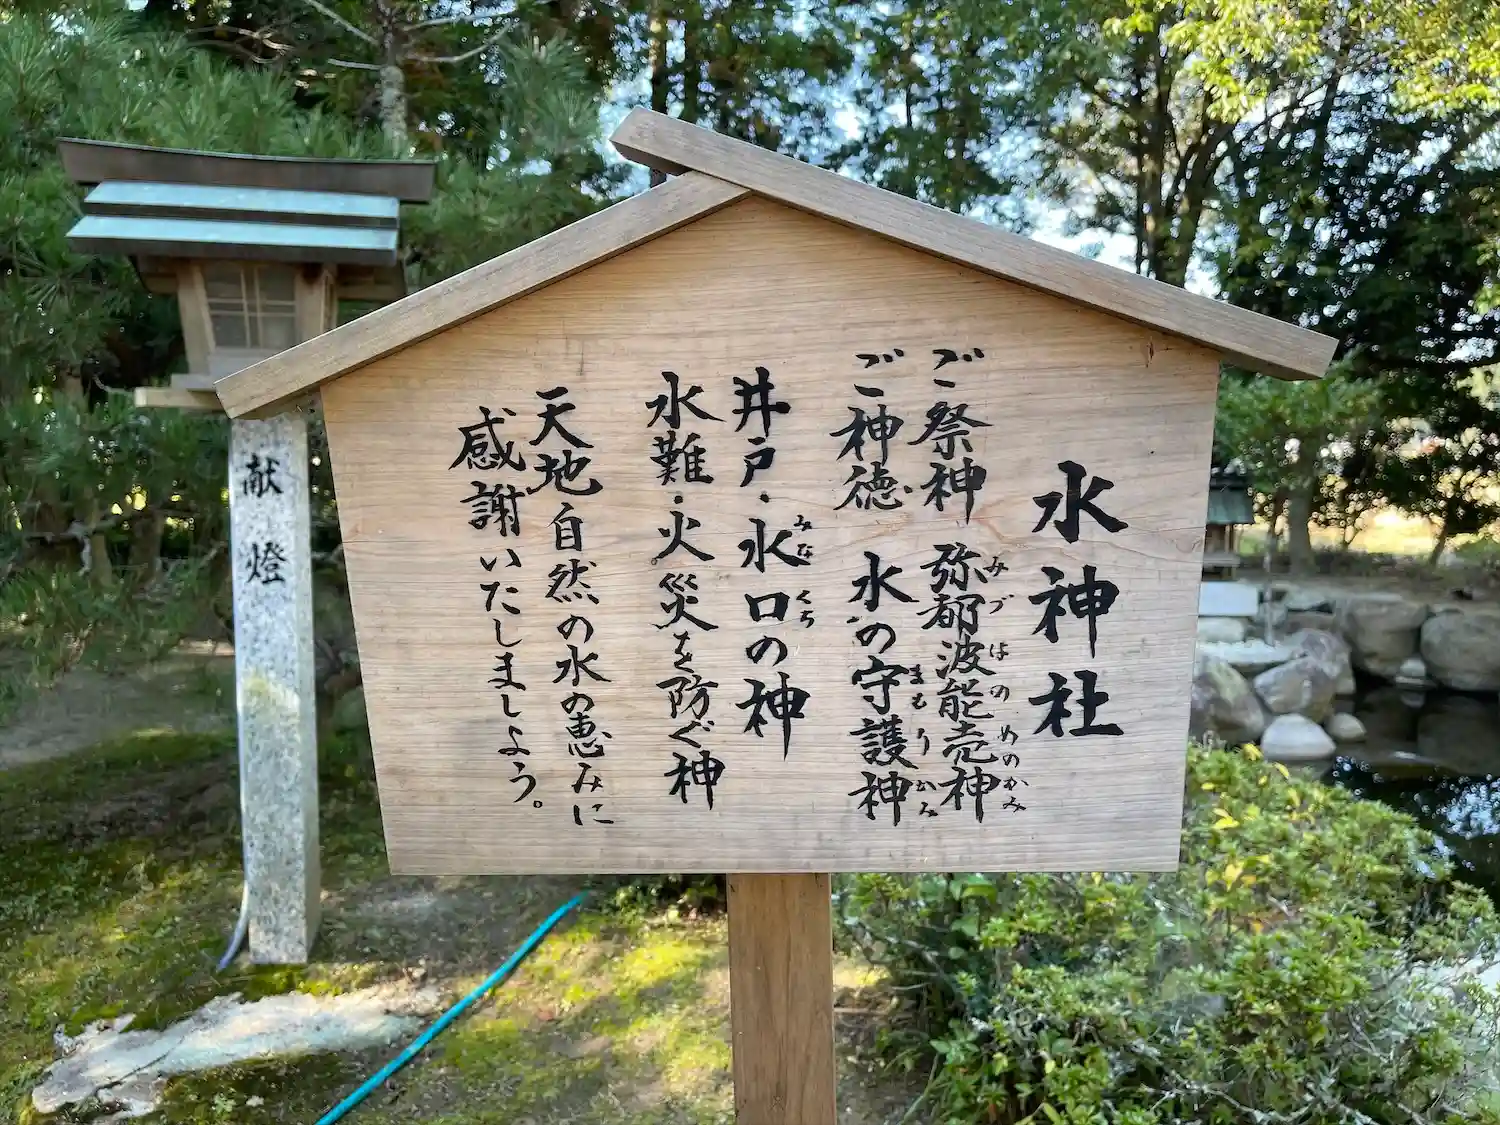 水神社
ご祭神 弥都波能売神
みづはのめのかみ
ご神徳 水の守護神
まもりかみ
井戸・水口の神
みなくち
水難・火災を防ぐ神
天地自然の水の恵みに
感謝いたしましょう。
献燈